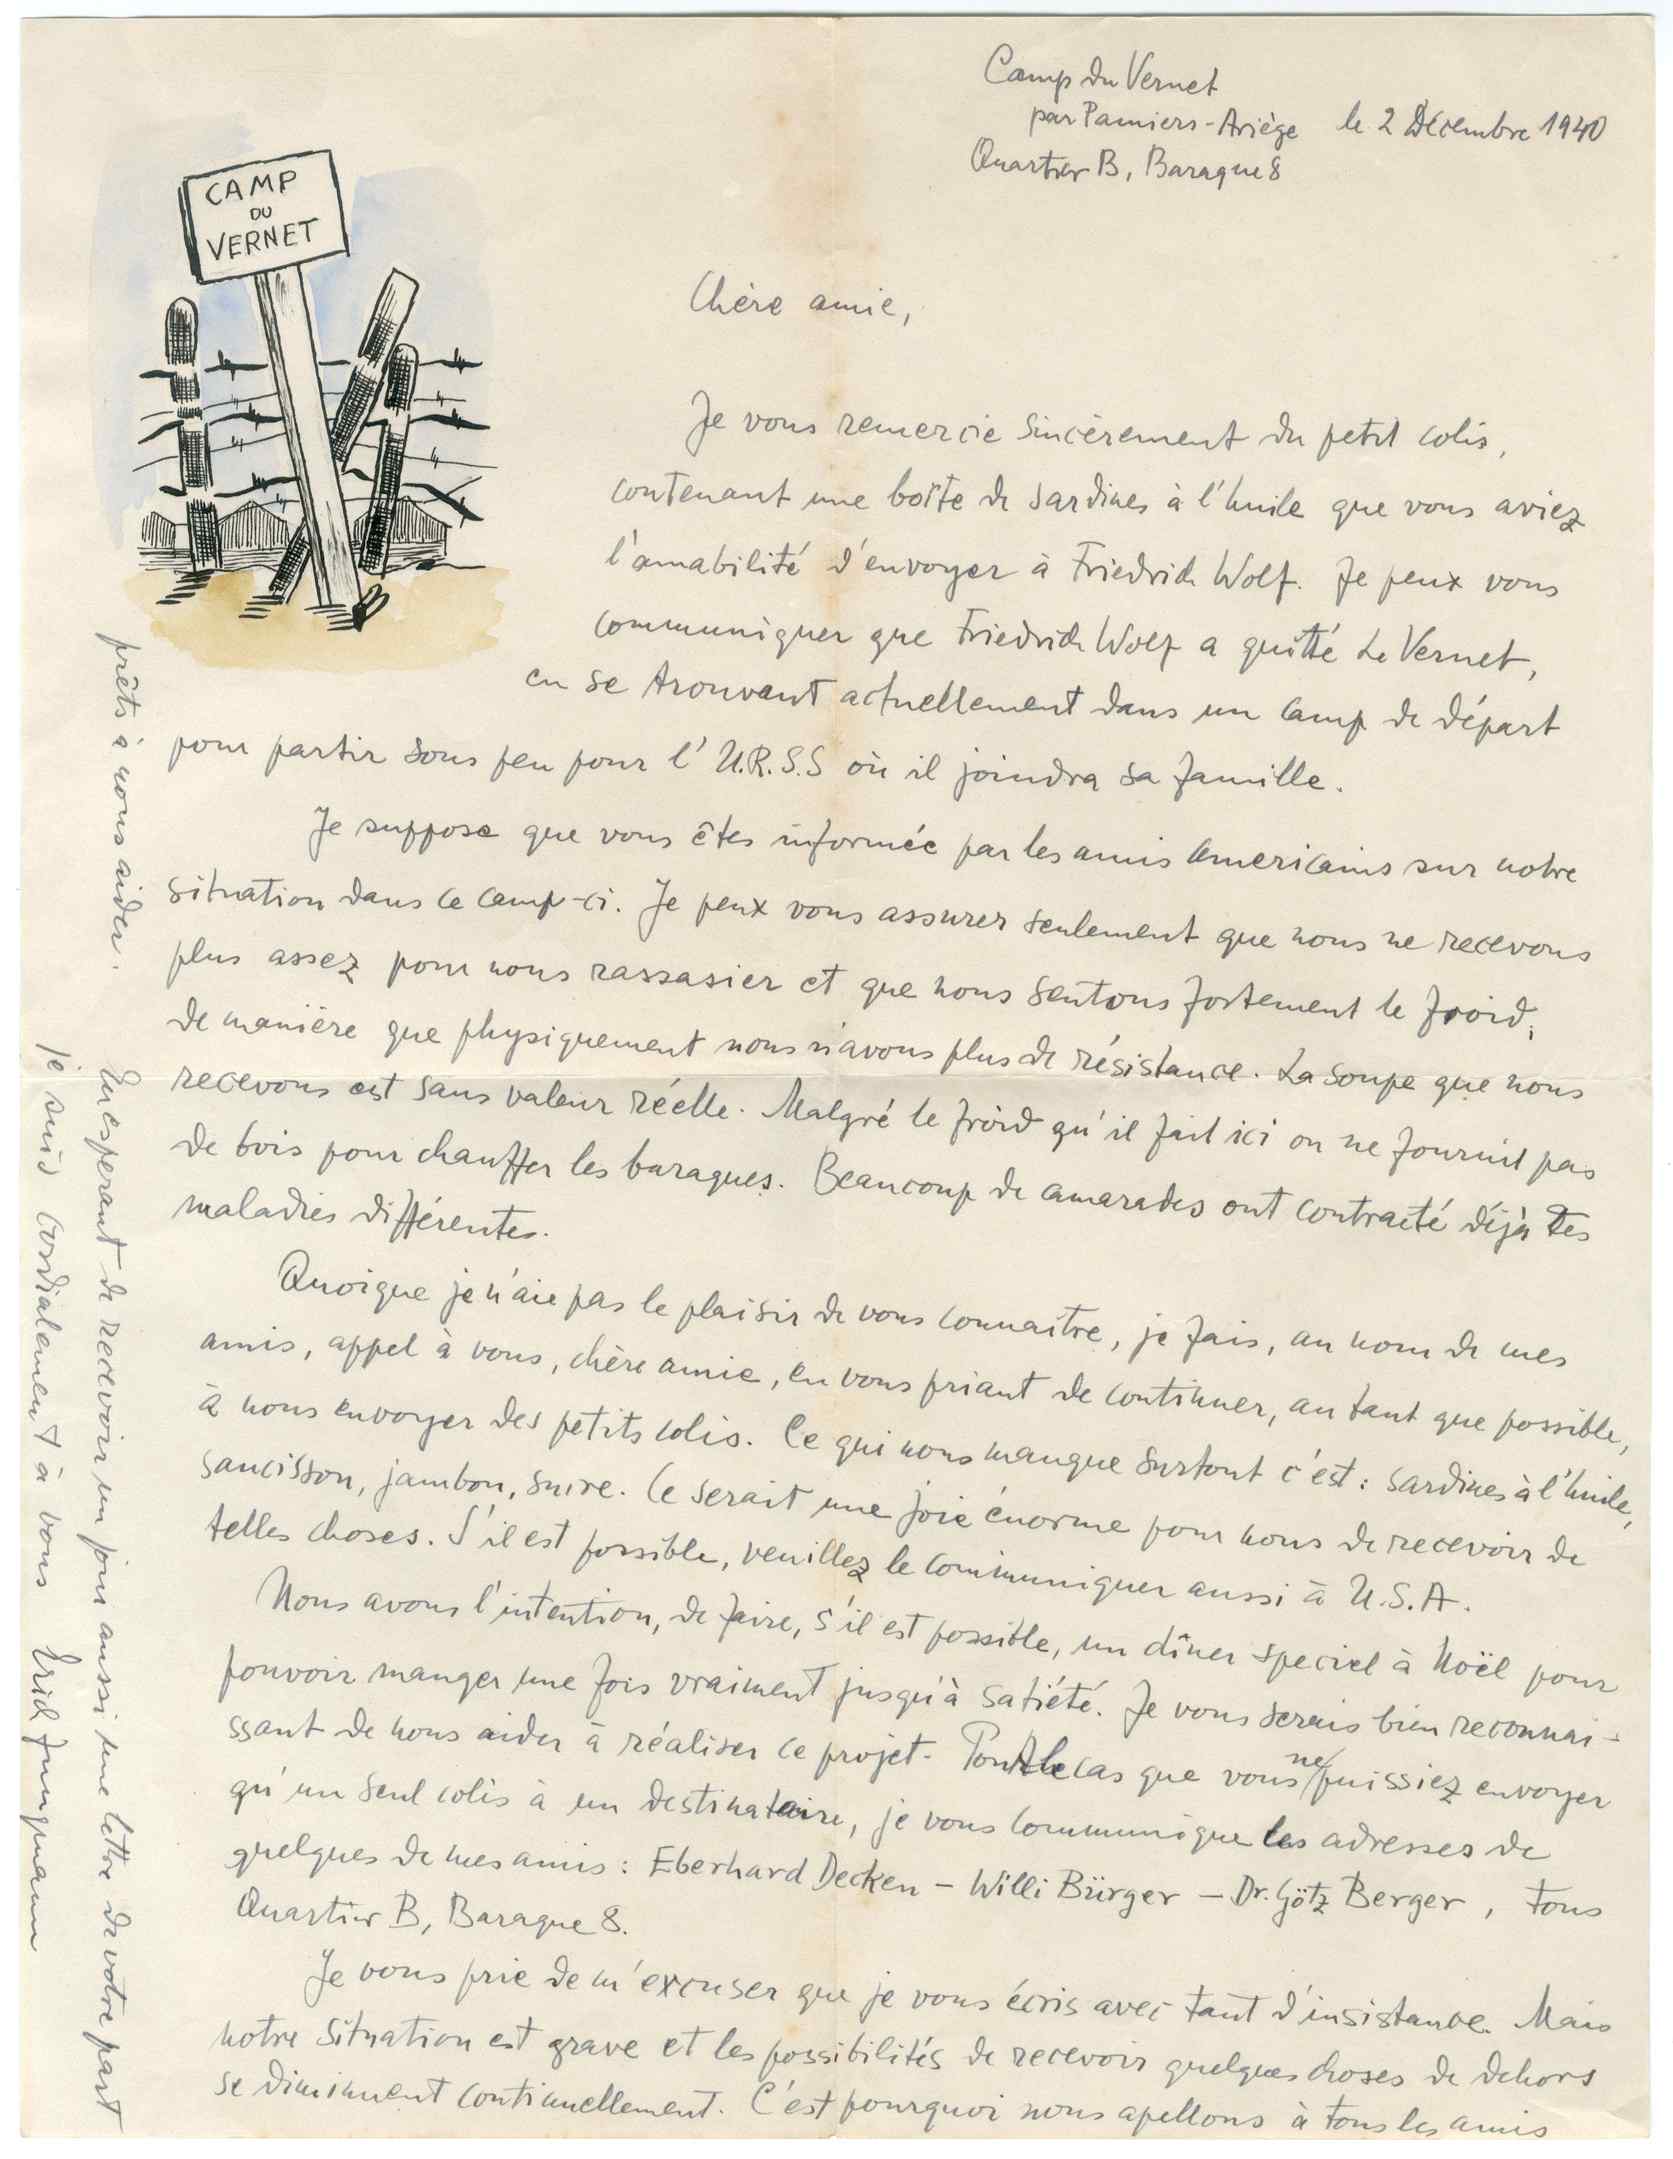 Camp du Vernet
par Pamiers - Ariège le 2 Décembre 1940
Quartier B, Baraque 8
CAMP
DU
VERNET
Chère amie,
Je vous remercie sincèrement du petit colis,
contenant une boîte de sardines à l'huile que vous aviez
l'amabilité d'envoyer à Friedrich Wolf. Je peux vous
communiquer que Friedrich Wolf a quitté Le Vernet,
en se trouvant actuellement dans un camp de départ
pour partir sous peu pour l'U.R.S.S où il joindra sa famille.
Je suppose que vous êtes informée par les amis americains sur notre
situation dans ce camp-ci. Je peux vous assurer seulement que nous ne recevons
plus assez pour nous rassasier et que nous sentons fortement le froid,
de manière que physiquement nous n'avons plus de résistance. La soupe que nous
recevons est sans valeur réelle. Malgré le froid qu'il fait ici on ne fournit pas
de bois pour chauffer les baraques. Beaucoup de camarades ont contracté déjà des
maladies différentes.
Quoique je n'aie pas le plaisir de vous connaitre, je fais, au nom de mes
amis, appel à vous, chère amie, en vous priant de continuer, au tant que possible,
à nous envoyer des petits colis. Ce qui nous manque surtout c'est : sardines à l'huile,
saucisson, jambon, sucre. Ce serait une joie énorme pour nous de recevoir de
telles choses. S'il est possible, veuillez le communiquer aussi à U.S.A.
Nous avons l'intention, de faire, s'il est possible, un dîner speciel à Noël pour
pouvoir manger une fois vraiment jusqu'à satiété. Je vous serais bien reconnai-
ssant de nous aider à réaliser ce projet. Pour le cas que vous ne puissiez envoyer
qu'un seul colis à un destinataire, je vous communique les adresses de
quelques de mes amis : Eberhard Decken - Willi Bürger - Dr. Götz Berger, tous
Quartier B, Baraque 8.
Je vous prie de m'excuser que je vous écris avec tant d'insistance. Mais
notre situation est grave et les possibilités de recevoir quelques choses de dehors
se diminuent continuellement. C'est pourquoi nous apellons à tous les amis
prêts à nous aider.
En esperant de recevoir un jour aussi une lettre de votre part
je suis cordialement à vous Erich Jungmann